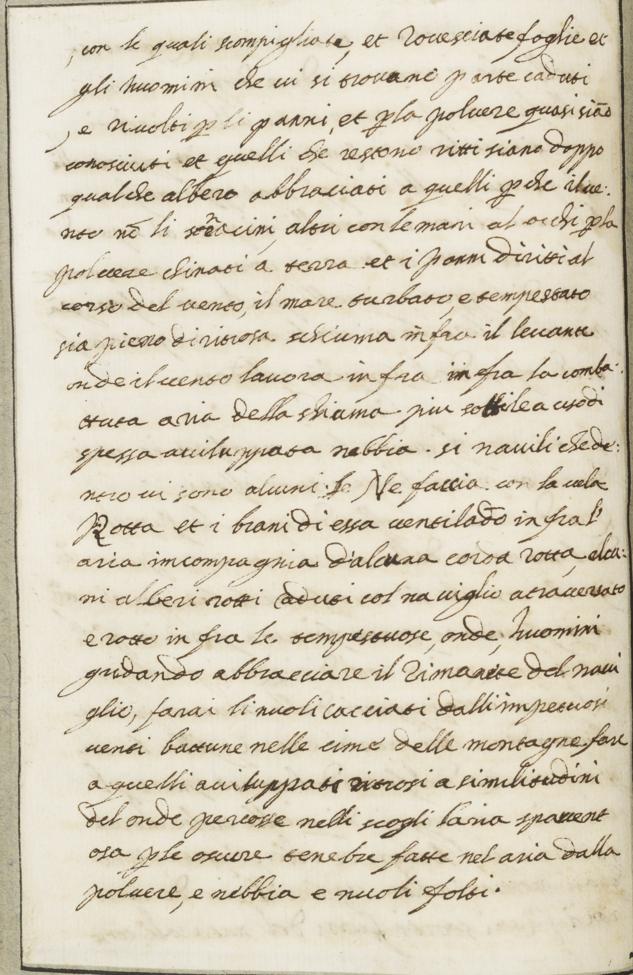 , con le quali scompigliate, et rovesciate foglie et
gli huomini che vi si trovano parte caduti
, e rivolti p li panni, et p la poluere quasi siāo
conosciuti et quelli che restono ritti siano doppo
qualche albero abbraciati a quelli p che il ue:
nto nō li stracini, altri con le mani al occhi p la
poluere chinati a terra et i panni diritti al
corso del uento, il mare turbato, e tempestato
sia pieno di ritrosa schiuma infra il leuante
onde il uento lauora in fra in fra la comba:
ttuta aria della schiuma piu sottile a uso di
spessa auiluppata nebbia. si nauili che de:
ntro ui sono alcuni Ne faccia con la uela
Rotta et i brani di essa uentilādo in fra l'
aria in compagnia d'alcuna corda rotta, alcu:
ni alberi rotti caduti col nauiglio atrauersato
e rotto in fra le tempestuose, onde, huomini
gridando abbracciare il rimanente del naui
glio, farai li nuoli cacciati dalli impetuosi
uenti battuti nelle cime delle montagne fare
a quelli auiluppati ritrosi a similitudini
del onde percosse nelli scogli laria spauent
osa p le oscure tenebre fatte nel aria dalla
poluere, e nebbia e nuoli folti.